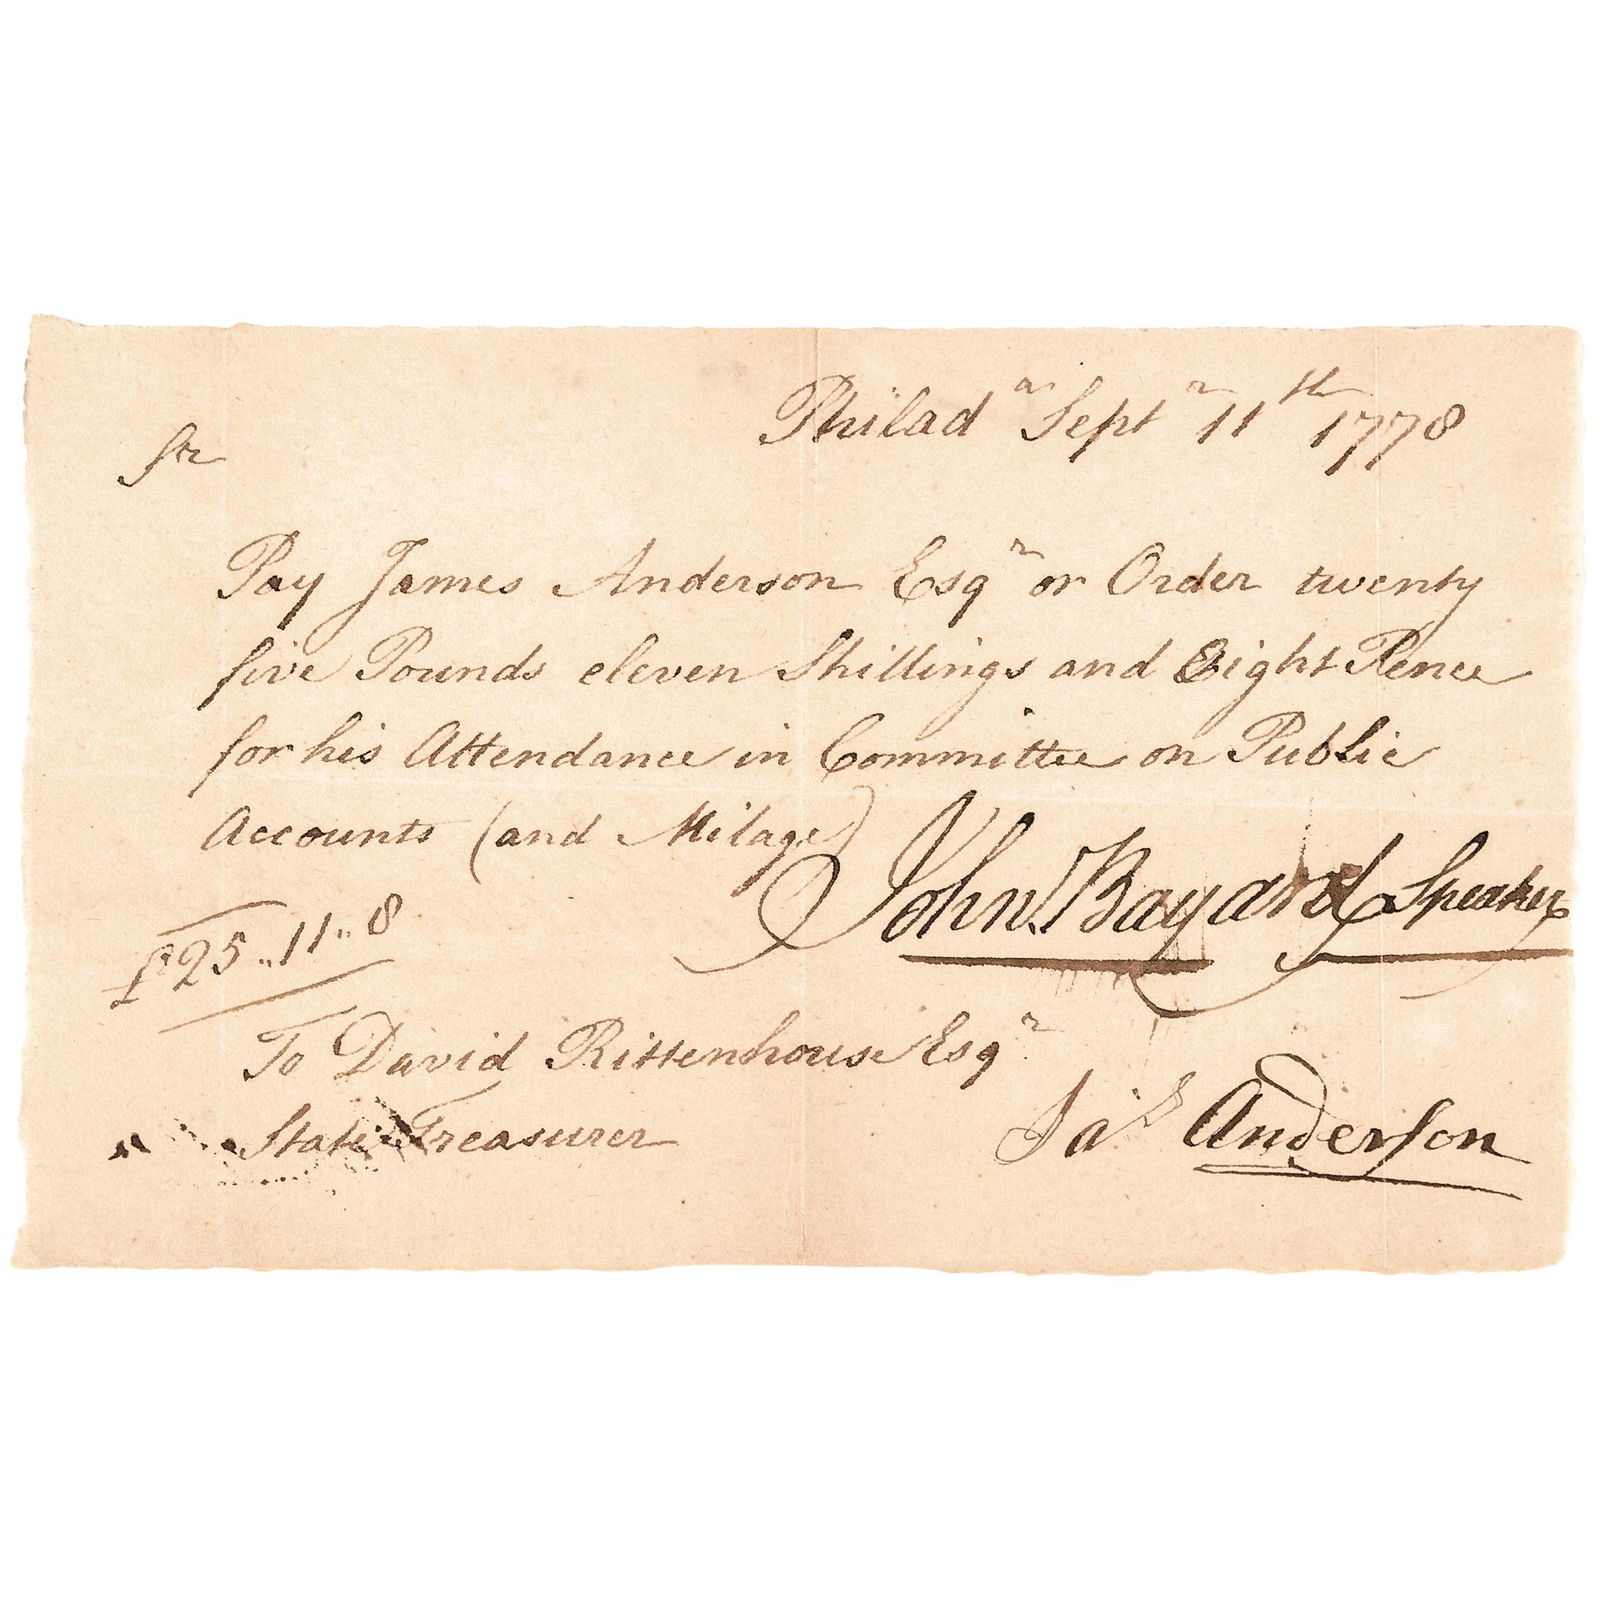 Philad a Sept r 11th 1778
Sr
Pay James Anderson Esqr or Order twenty
five Pounds eleven Shillings and Eight Pence
for his Attendance in Committee on Public
Accounts (and Milage)
John Bayard Speaker
£25..11..8
To David Rittenhouse Esqr
State Treasurer
Jas Anderson